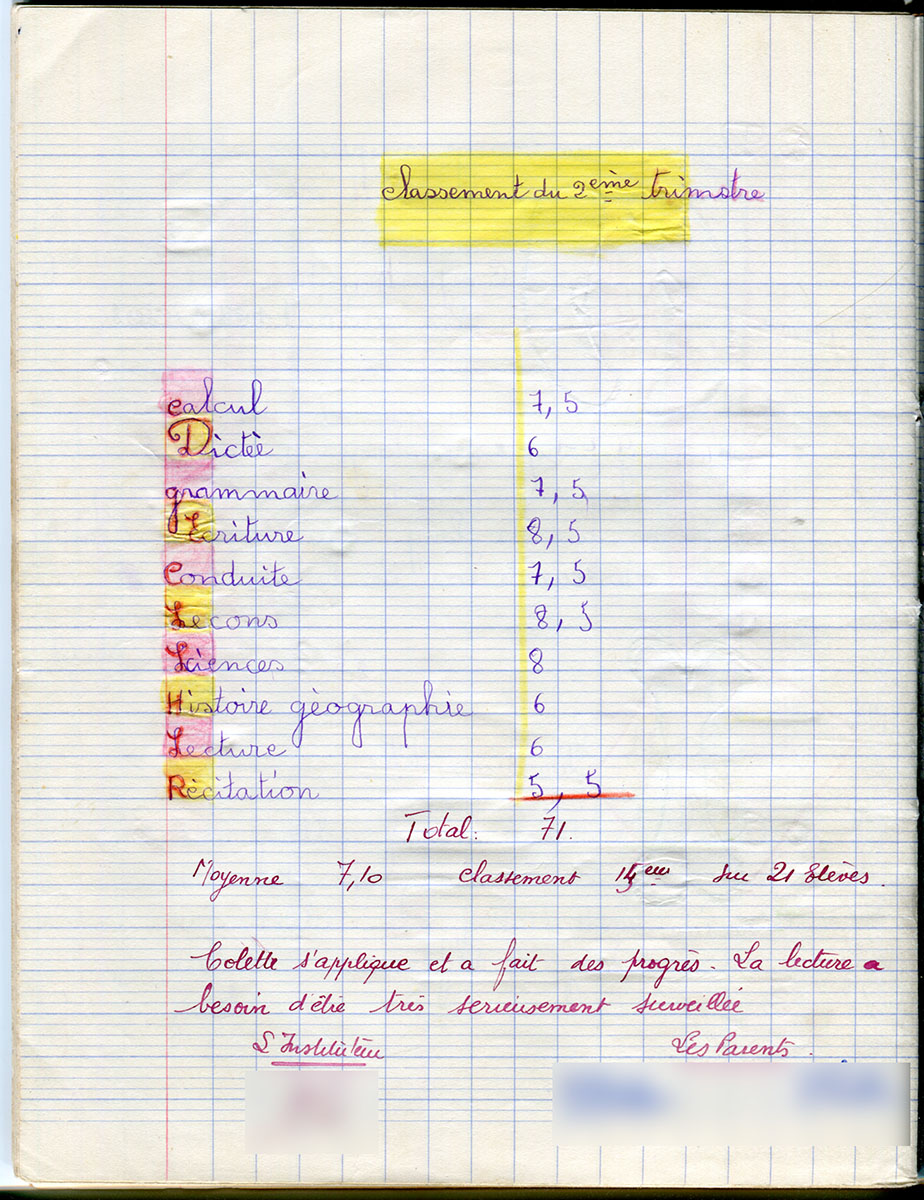 Classement du 2ème trimstre
Calcul 7,5
Dictée 6
grammaire 7,5
Ecriture 8,5
Conduite 7,5
Lecons 8,5
Sciences 8
Histoire gèographie 6
Lecture 6
Rècitation 5,5
Total: 71.
Moyenne 7,10 classement eme sur 21 Elèves.
Colette s'applique et a fait des progrès. La lecture a
besoin d'être très serieusement surveillée
L'Instituteur Les Parents.